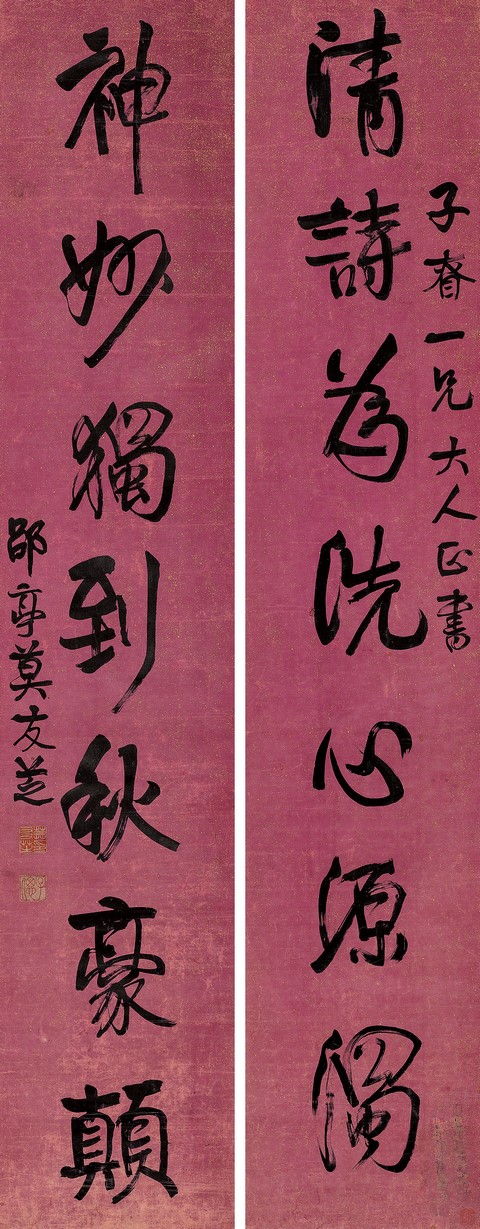 子春一兄大人正書
清詩為洗心源濁
神妙獨到秋豪顛
郘亭莫友芝